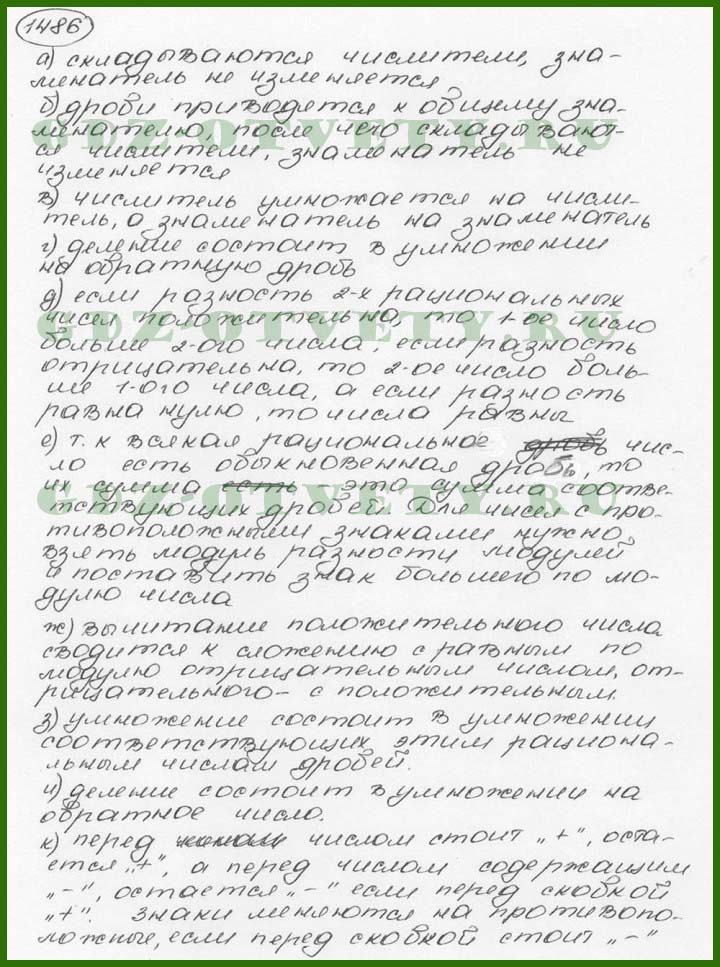 1486
а) складываются числители, зна-
менатель не изменяется
б) дроби приводятся к общему зна-
менателю, после чего складывают-
ся числители, знаменатель не
изменяется
в) числитель умножается на числи-
тель, а знаменатель на знаменатель
г) деление состоит в умножении
на обратную дробь
д) если разность 2-х рациональных
чисел положительна, то 1-ое число
больше 2-ого числа, если разность
отрицательна, то 2-ое число боль-
ше 1-ого числа, а если разность
равна нулю, то числа равны
е) т.к всякая рациональное дробь чис-
ло есть обыкновенная дробь, то
их сумма есть - это сумма соотве-
тствующих дробей. Для чисел с про-
тивоположными знаками нужно
взять модуль разности модулей
и поставить знак большего по мо-
дулю числа
ж) вычитание положительного числа
сводится к сложению с равным по
модулю отрицательным числом, от-
рицательного - с положительным.
з) умножение состоит в умножении
соответствующих этим рациона-
льным числам дробей.
и) деление состоит в умножении на
обратное число.
к) перед числом стоит „+", оста-
ется „+", а перед числом содержащим
„-", остается „-" если перед скобкой
„+". Знаки меняются на противопо-
ложные, если перед скобкой стоит „-"
GDZ-OTVETY.RU
GDZ-OTVETY.RU
GDZ-OTVETY.RU